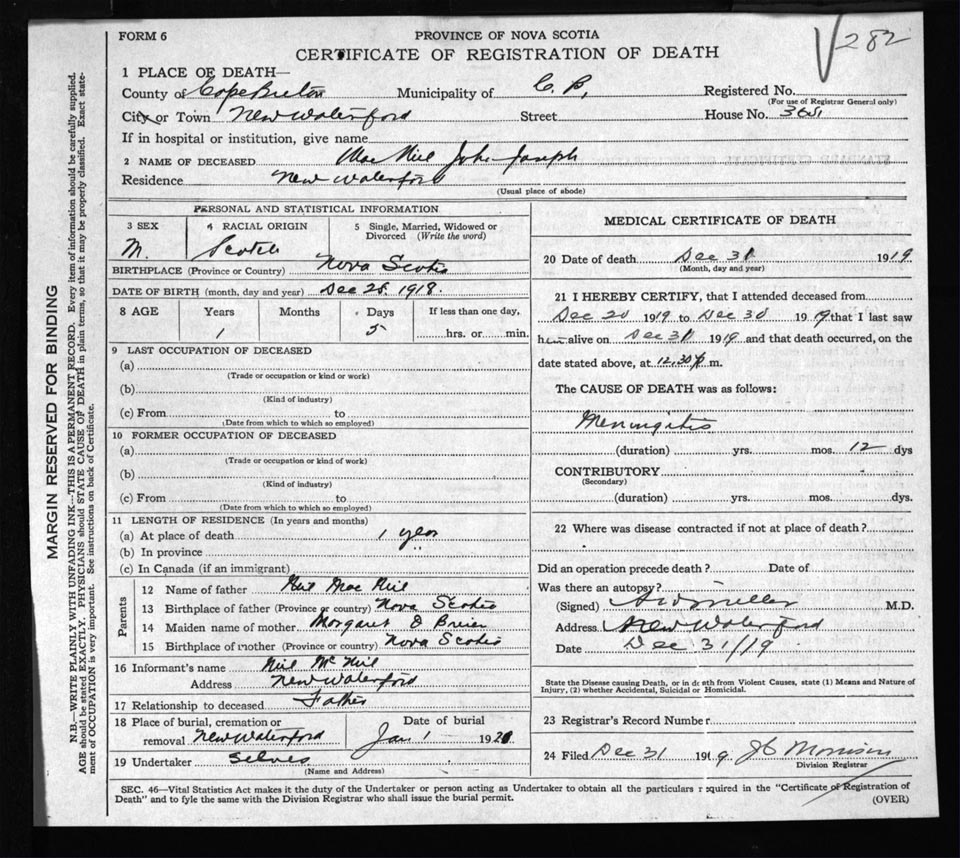 FORM 6
PROVINCE OF NOVA SCOTIA
282
CERTIFICATE OF REGISTRATION OF DEATH
1 PLACE OF DEATH—
County of Cape Breton Municipality of C. B. Registered No.
(For use of Registrar General only)
City or Town New Waterford Street House No.
If in hospital or institution, give name
2 NAME OF DECEASED Mac Neil John Joseph
Residence New Waterford
(Usual place of abode)
PERSONAL AND STATISTICAL INFORMATION
3 SEX M. 4 RACIAL ORIGIN Scotch 5 Single, Married, Widowed or Divorced (Write the word)
BIRTHPLACE (Province or Country) Nova Scotia
DATE OF BIRTH (month, day and year) Dec 25. 1918.
8 AGE Years Months Days If less than one day,
1 5 hrs. or min.
9 LAST OCCUPATION OF DECEASED
(a)
(Trade or occupation or kind or work)
(b)
(Kind of industry)
(c) From to
(Date from which to which so employed)
10 FORMER OCCUPATION OF DECEASED
(a)
(Trade or occupation or kind of work)
(b)
(Kind of industry)
(c) From to
(Date from which to which so employed)
11 LENGTH OF RESIDENCE (In years and months)
(a) At place of death 1 year
(b) In province "
(c) In Canada (if an immigrant)
Parents
12 Name of father Neil Mac Neil
13 Birthplace of father (Province or country) Nova Scotia
14 Maiden name of mother Morgaret O Brien
15 Birthplace of mother (Province or country) Nova Scotia
16 Informant's name Neil Mc Neil
Address New Waterford
17 Relationship to deceased Father
18 Place of burial, cremation or removal New Waterford Date of burial Jan 1 1920
19 Undertaker Selves
(Name and Address)
MEDICAL CERTIFICATE OF DEATH
20 Date of death Dec 31 1919.
(Month, day and year)
21 I HEREBY CERTIFY, that I attended deceased from
Dec 20 1919 to Dec 30 1919 that I last saw
him alive on Dec 31 1919 and that death occurred, on the
date stated above, at 12.30 p m.
The CAUSE OF DEATH was as follows:
Meningitis
(duration) yrs. mos. 12 dys
CONTRIBUTORY
(Secondary)
(duration) yrs. mos. dys.
22 Where was disease contracted if not at place of death?
Did an operation precede death? Date of
Was there an autopsy?
(Signed) M.D.
Address New Waterford
Date Dec 31/19
State the Disease causing Death, or in death from Violent Causes, state (1) Means and Nature of
Injury, (2) whether Accidental, Suicidal or Homicidal.
23 Registrar's Record Number
24 Filed Dec 31 1919 J C Morrison
Division Registrar
SEC. 46—Vital Statistics Act makes it the duty of the Undertaker or person acting as Undertaker to obtain all the particulars required in the "Certificate of Registration of
Death" and to fyle the same with the Division Registrar who shall issue the burial permit.
(OVER)
MARGIN RESERVED FOR BINDING
N.B.—WRITE PLAINLY WITH UNFADING INK—THIS IS A PERMANENT RECORD. Every item of information should be carefully supplied.
AGE should be stated EXACTLY. PHYSICIANS should STATE CAUSE OF DEATH in plain terms, so that it may be properly classified. Exact state-
ment of OCCUPATION is very important. See instructions on back of Certificate.